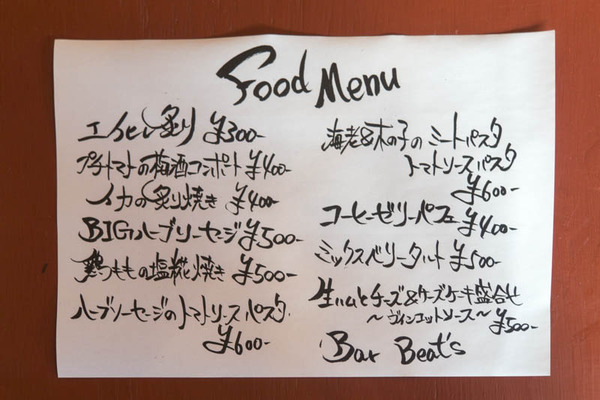 Food Menu
エイヒレ炙り ¥300-
プチトマトの梅酒コンポート ¥400-
イカの炙り焼き ¥400-
BIGハーブソーセージ ¥500-
鶏ももの塩糀焼き ¥500-
ハーブソーセージのトマトソースパスタ
¥600-
海老&木の子の ミートパスタ
トマトソースパスタ
¥600-
コーヒーゼリーパフェ ¥400-
ミックスベリータルト ¥500-
生ハムとチーズ&チーズケーキ盛合せ
〜ヴィンコットソース〜 ¥500-
Bar Beat's